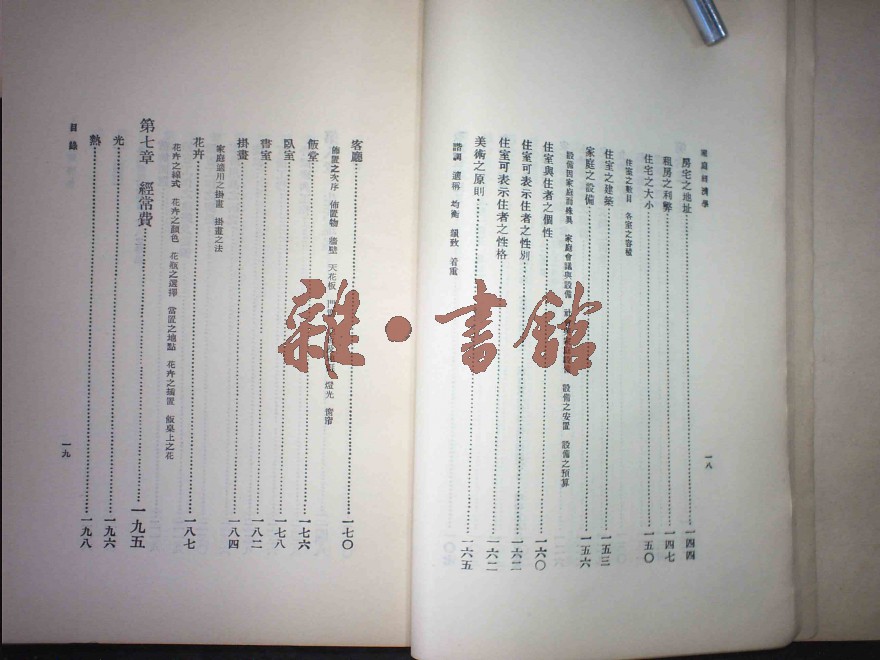 家庭經濟學
房宅之地址 一四四
租房之利弊 一四七
住宅之大小 一五〇
住室之數目 各室之容積
住室之建築 一五三
家庭之設備 一五六
設備因家庭而殊異 家庭會議與設備 設備之安置 設備之預算
住室與住者之個性 一六〇
住室可表示住者之性別 一六二
住室可表示住者之性格 一六二
美術之原則 一六五
諧調 適稱 均衡 韻致 着重
一八
客廳 一七〇
佈置之次序 佈置物 牆壁 天花板 燈光 窗帘
飯堂 一七六
臥室 一七八
書室 一八二
掛畫 一八四
家庭適用之掛畫 掛畫之法
花卉 一八七
花卉之線式 花卉之顏色 花瓶之選擇 當置之地點 花卉之插置 飯桌上之花
第七章 經常費 一九五
光 一九六
熱 一九八
目錄
一九
雜·書館